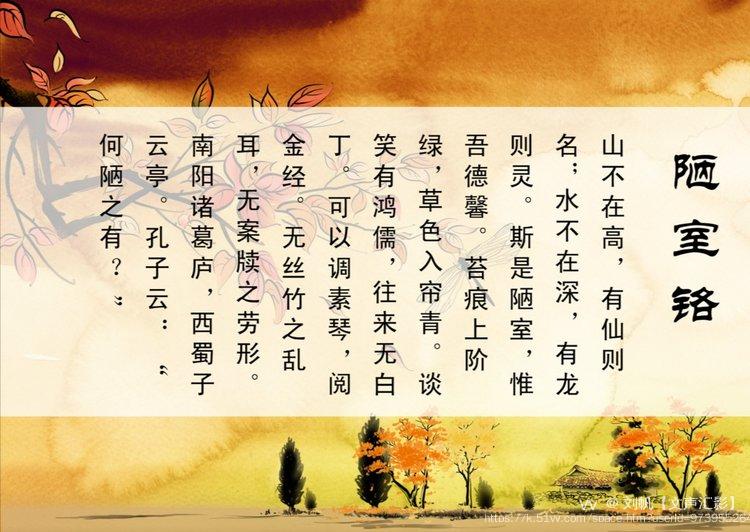 陋室铬
山不在高，有仙则
名；水不在深，有龙
则灵。斯是陋室，惟
吾德馨。苔痕上阶
绿，草色入帘青。谈
笑有鸿儒，往来无白
丁。可以调素琴，阅
金经。无丝竹之乱
耳，无案牍之劳形。
南阳诸葛庐，西蜀子
云亭。孔子云：“
何陋之有？”
@刘帆【文声汇影】